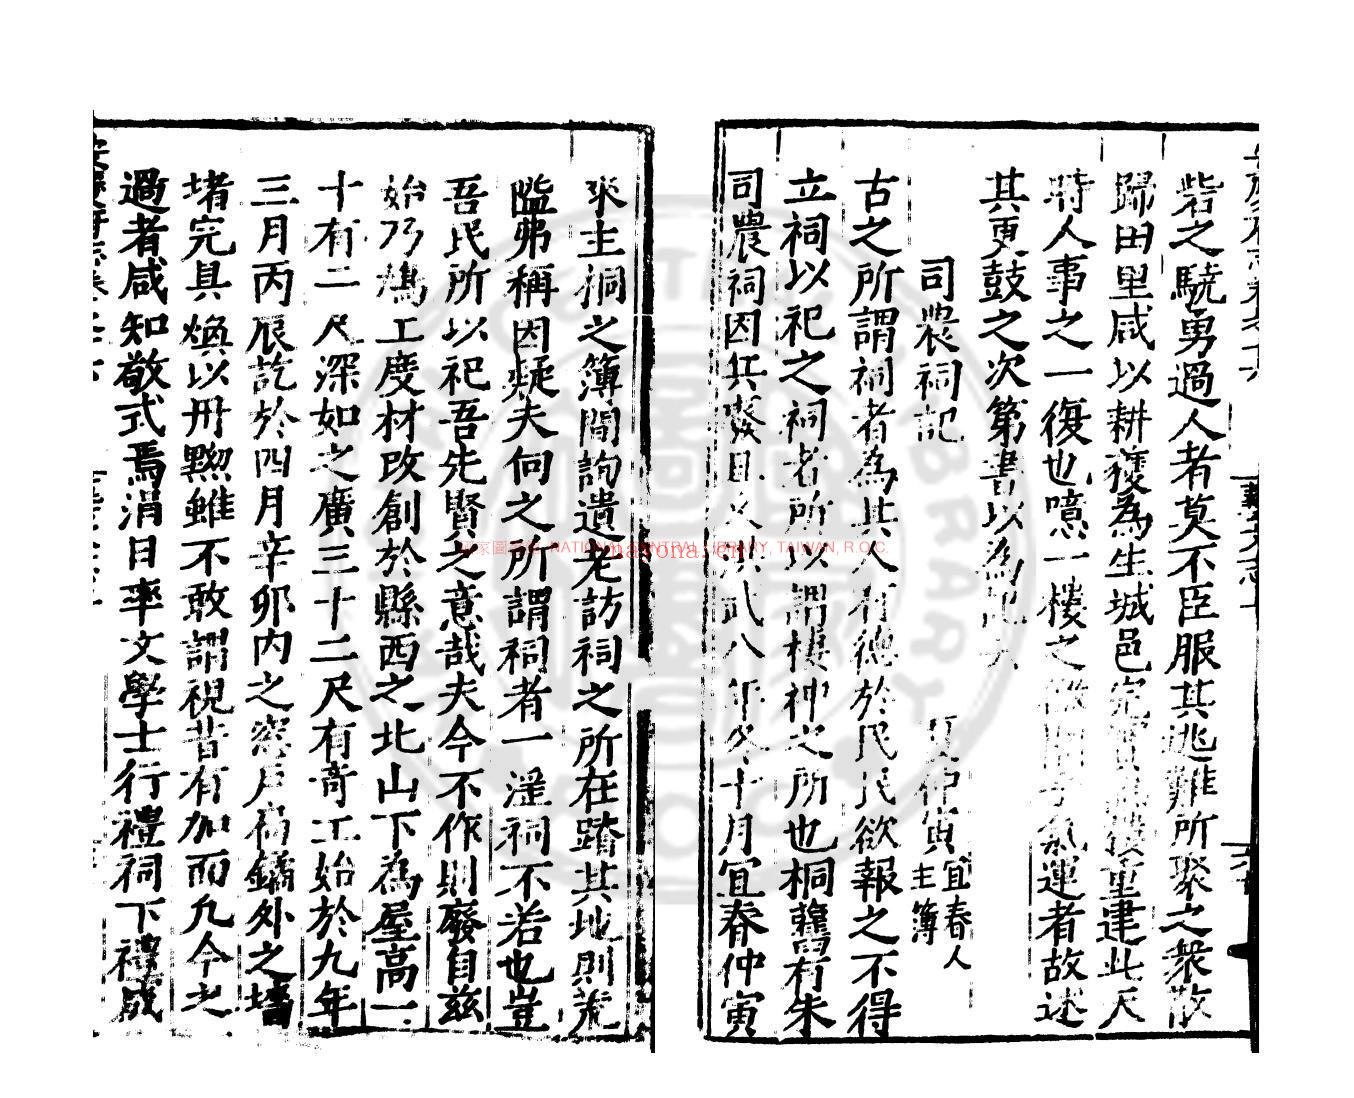 砦之驍勇過人者莫不臣服其逃難所聚之衆散
歸田里咸以耕穫為生城邑完 重建此天
時人事之一復也噫一樓之 運者故述
其更鼓之次第書以為記
司農祠記 夏仲寅 宜春人主簿
古之所謂祠者為其人有德於民民欲報之不得
立祠以祀之祠者所以謂棲神之所也桐舊有朱
司農祠因兵 洪武八年冬十月宜春仲寅
來主桐之簿間詢遺老訪祠之所在踏其地則荒
隘弗稱因疑夫何之所謂祠者一淫祠不若也豈
吾民所以祀吾先賢之意哉夫今不作則廢自茲
始乃鳩工度材改創於縣西之北山下為屋高一
十有二尺深如之廣三十二尺有奇工始於九年
三月丙辰訖於四月辛卯內之窓戶 鐍外之墻
堵完具煥以丹黝雖不敢謂視昔有加而凡今之
過者咸知敬式焉涓日率文學士行禮祠下禮成
NATIONAL CENTRAL LIBRARY, TAIWAN, R.O.C.